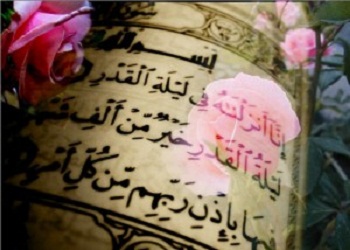 بِسْمِ اللَّهِ
إِنَّا أَنْزَلْنَٰهُ فِي لَيْلَةِ الْقَدْرِ
لَيْلَةُ الْقَدْرِ خَيْرٌ مِّنْ أَلْفِ
بِإِذْنِ رَبِّهِم مِّن كُلِّ أَمْرٍ